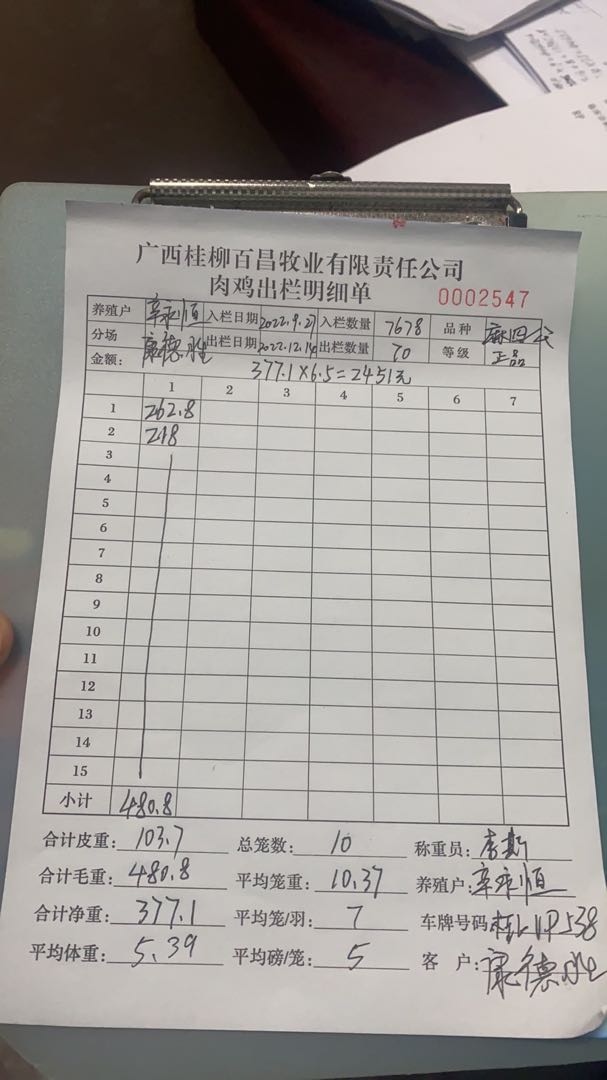 广西桂柳百昌牧业有限责任公司
肉鸡出栏明细单 0002547
养殖户 辛永恒 入栏日期 2022.9.27 入栏数量 7678 品种 麻四公
分场 康德胜 出栏日期 2022.12.14 出栏数量 70 等级 正品
金额: 377.1×6.5=2451元
1 2 3 4 5 6 7
1 262.8
2 218
3
4
5
6
7
8
9
10
11
12
13
14
15
小计 480.8
合计皮重: 103.7 总笼数: 10 称重员: 李斯
合计毛重: 480.8 平均笼重: 10.37 养殖户: 辛永恒
合计净重: 377.1 平均笼/羽: 7 车牌号码
平均体重: 5.39 平均磅/笼: 5 客户: 康德胜